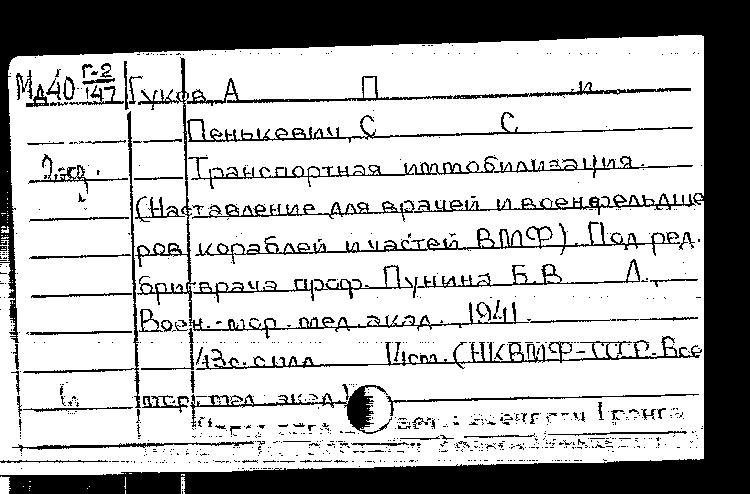 Мд40 Г-2/147 Гуков, А П и
Пенькевич, С С.
Транспортная иммобилизация.
(Наставление для врачей и военфельдше
ров кораблей и частей ВМФ). Под ред.
бригврача проф. Пунина Б.В Л.,
Воен.-мор. мед. акад., 1941.
43с. с илл 14см. (НКВМФ-СССР. Вое
мор. мед. акад.)
ранга